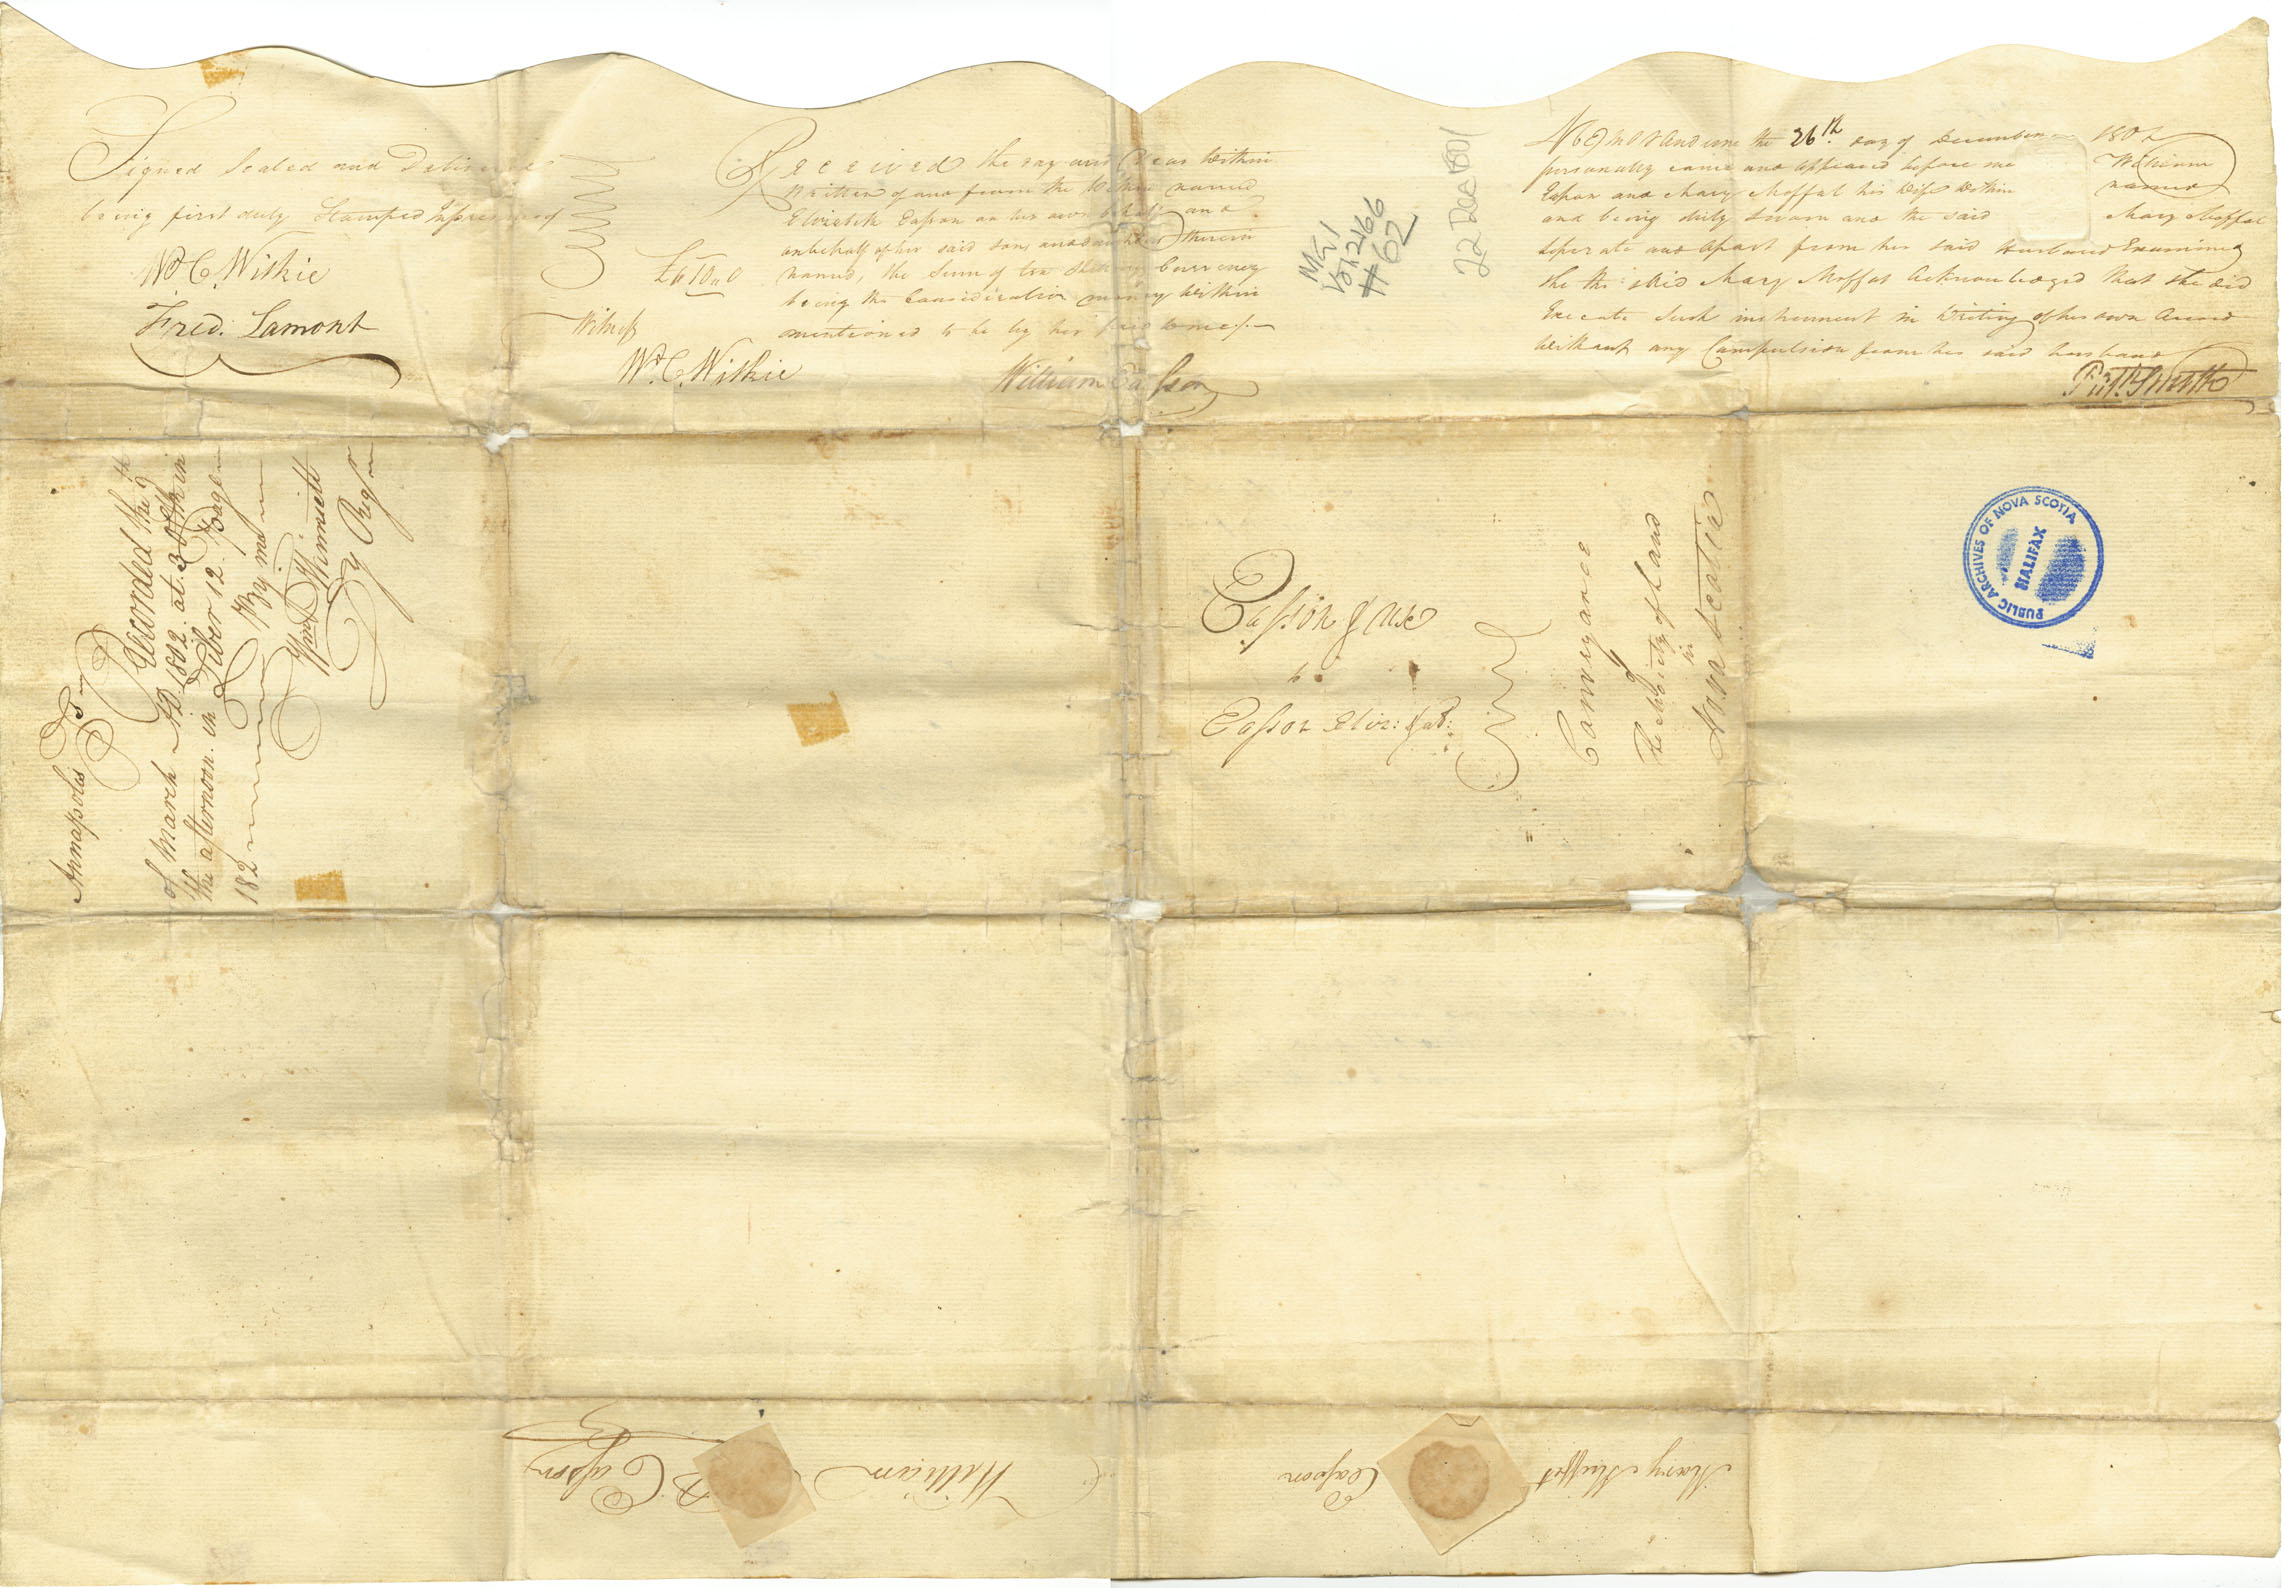 Signed Sealed and Delivered
being first duly Stamped Impression of
Wm. C. Wilkie
Fred. Lamont
Received the day and Year within
Written of and from the Within named
Elizabeth Easson on her own behalf and
on behalf of her said sons and daughters therein
named, the Sum of ten Shillings Currency
being the Consideration money within
mentioned to be by her paid to me
£0 10 0
Witness
Wm. C. Wilkie
William Easson
MG1
Vol 2166
# 62
22 Dec 1801
Memorandum the 26th day of December 1801
personally came and appeared before me William
Easson and Mary Moffat his Wife Within named
and being duly Sworn and the said Mary Moffat
seperate and apart from her said Husband Examined
she the said Mary Moffat Acknowledged that she did
Execute Such instrument in Writing of her own Accord
Without any Compulsion from her said husband
Annapolis Ss
Recorded the 9th
of March AD. 1802. at 3 oClk in
the afternoon in Liber 12. Page
182
By me
Dy Regr
Easson & Ux
to
Easson Eliz: & al:
Conveyance
The Moiety of Land
in
Nova Scotia
PUBLIC ARCHIVES OF NOVA SCOTIA
HALIFAX
William Easson
Mary Moffat Easson